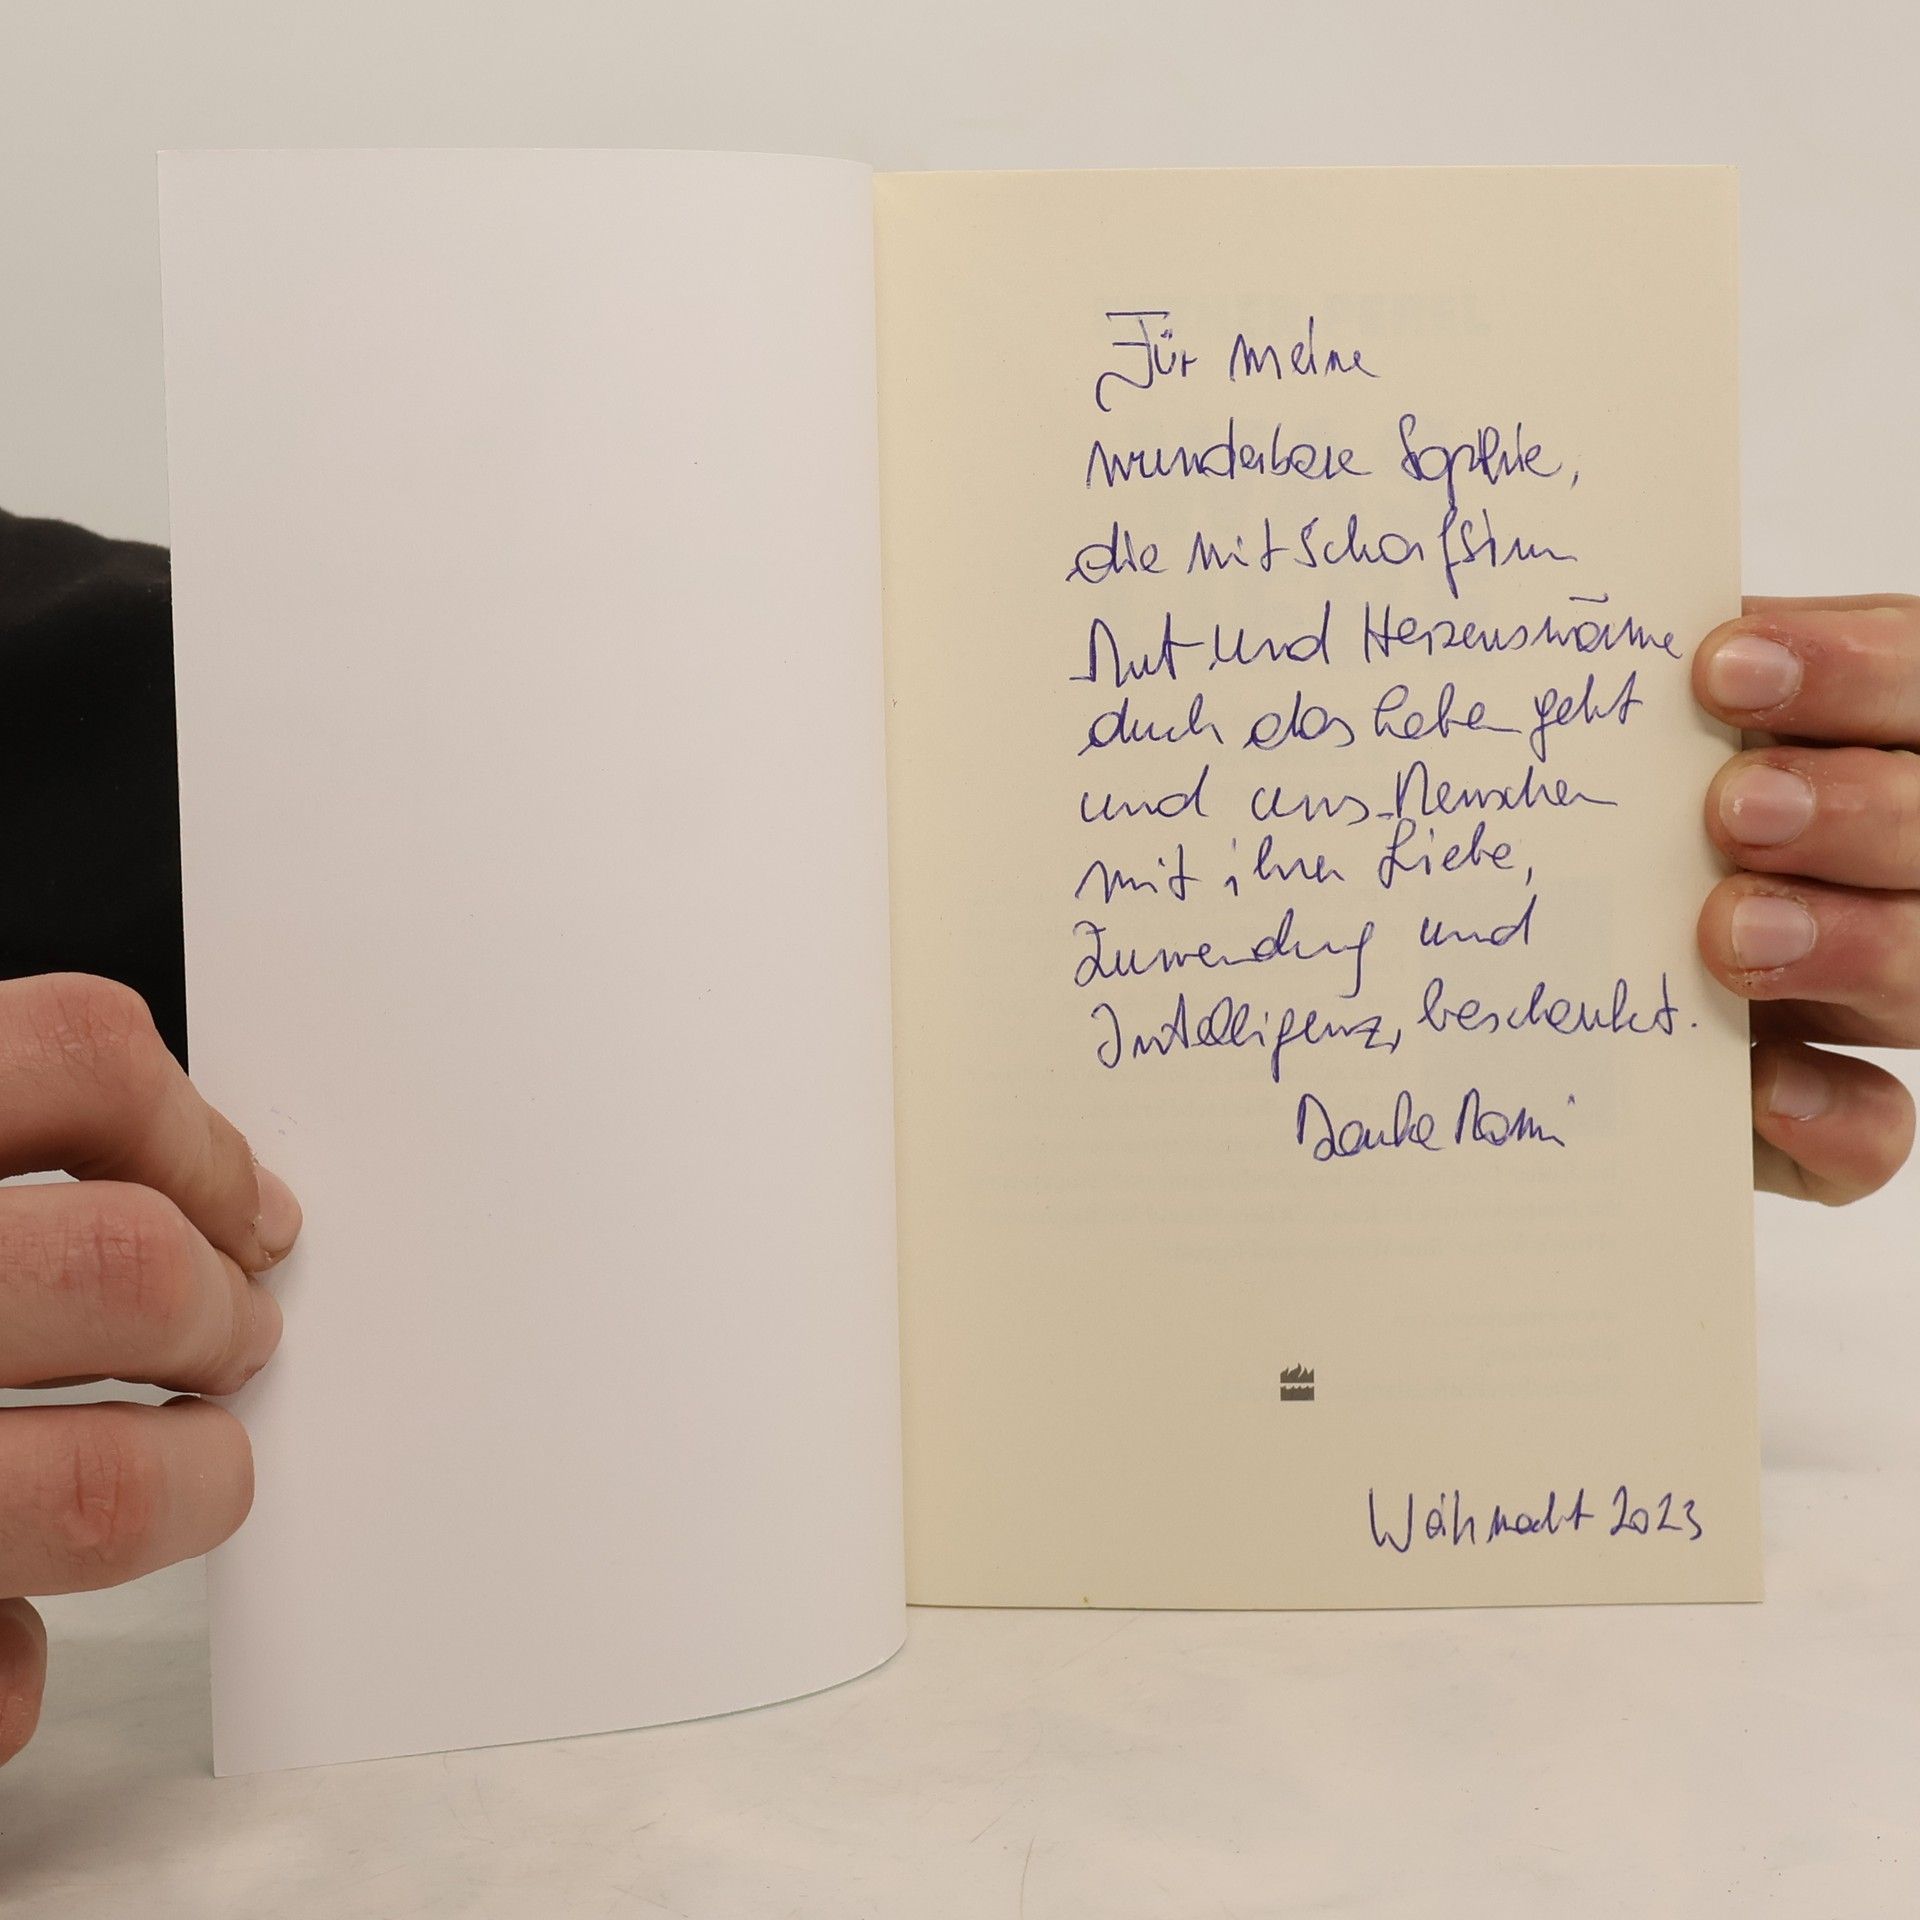 Für meine
wunderbare Sophie,
die mit Scharfsinn
Mut und Herzenswärme
durch das Leben geht
und uns Menschen
mit ihrer Liebe,
Zuwendung und
Intelligenz, beschenkt.
Danke Mami
Weihnacht 2023